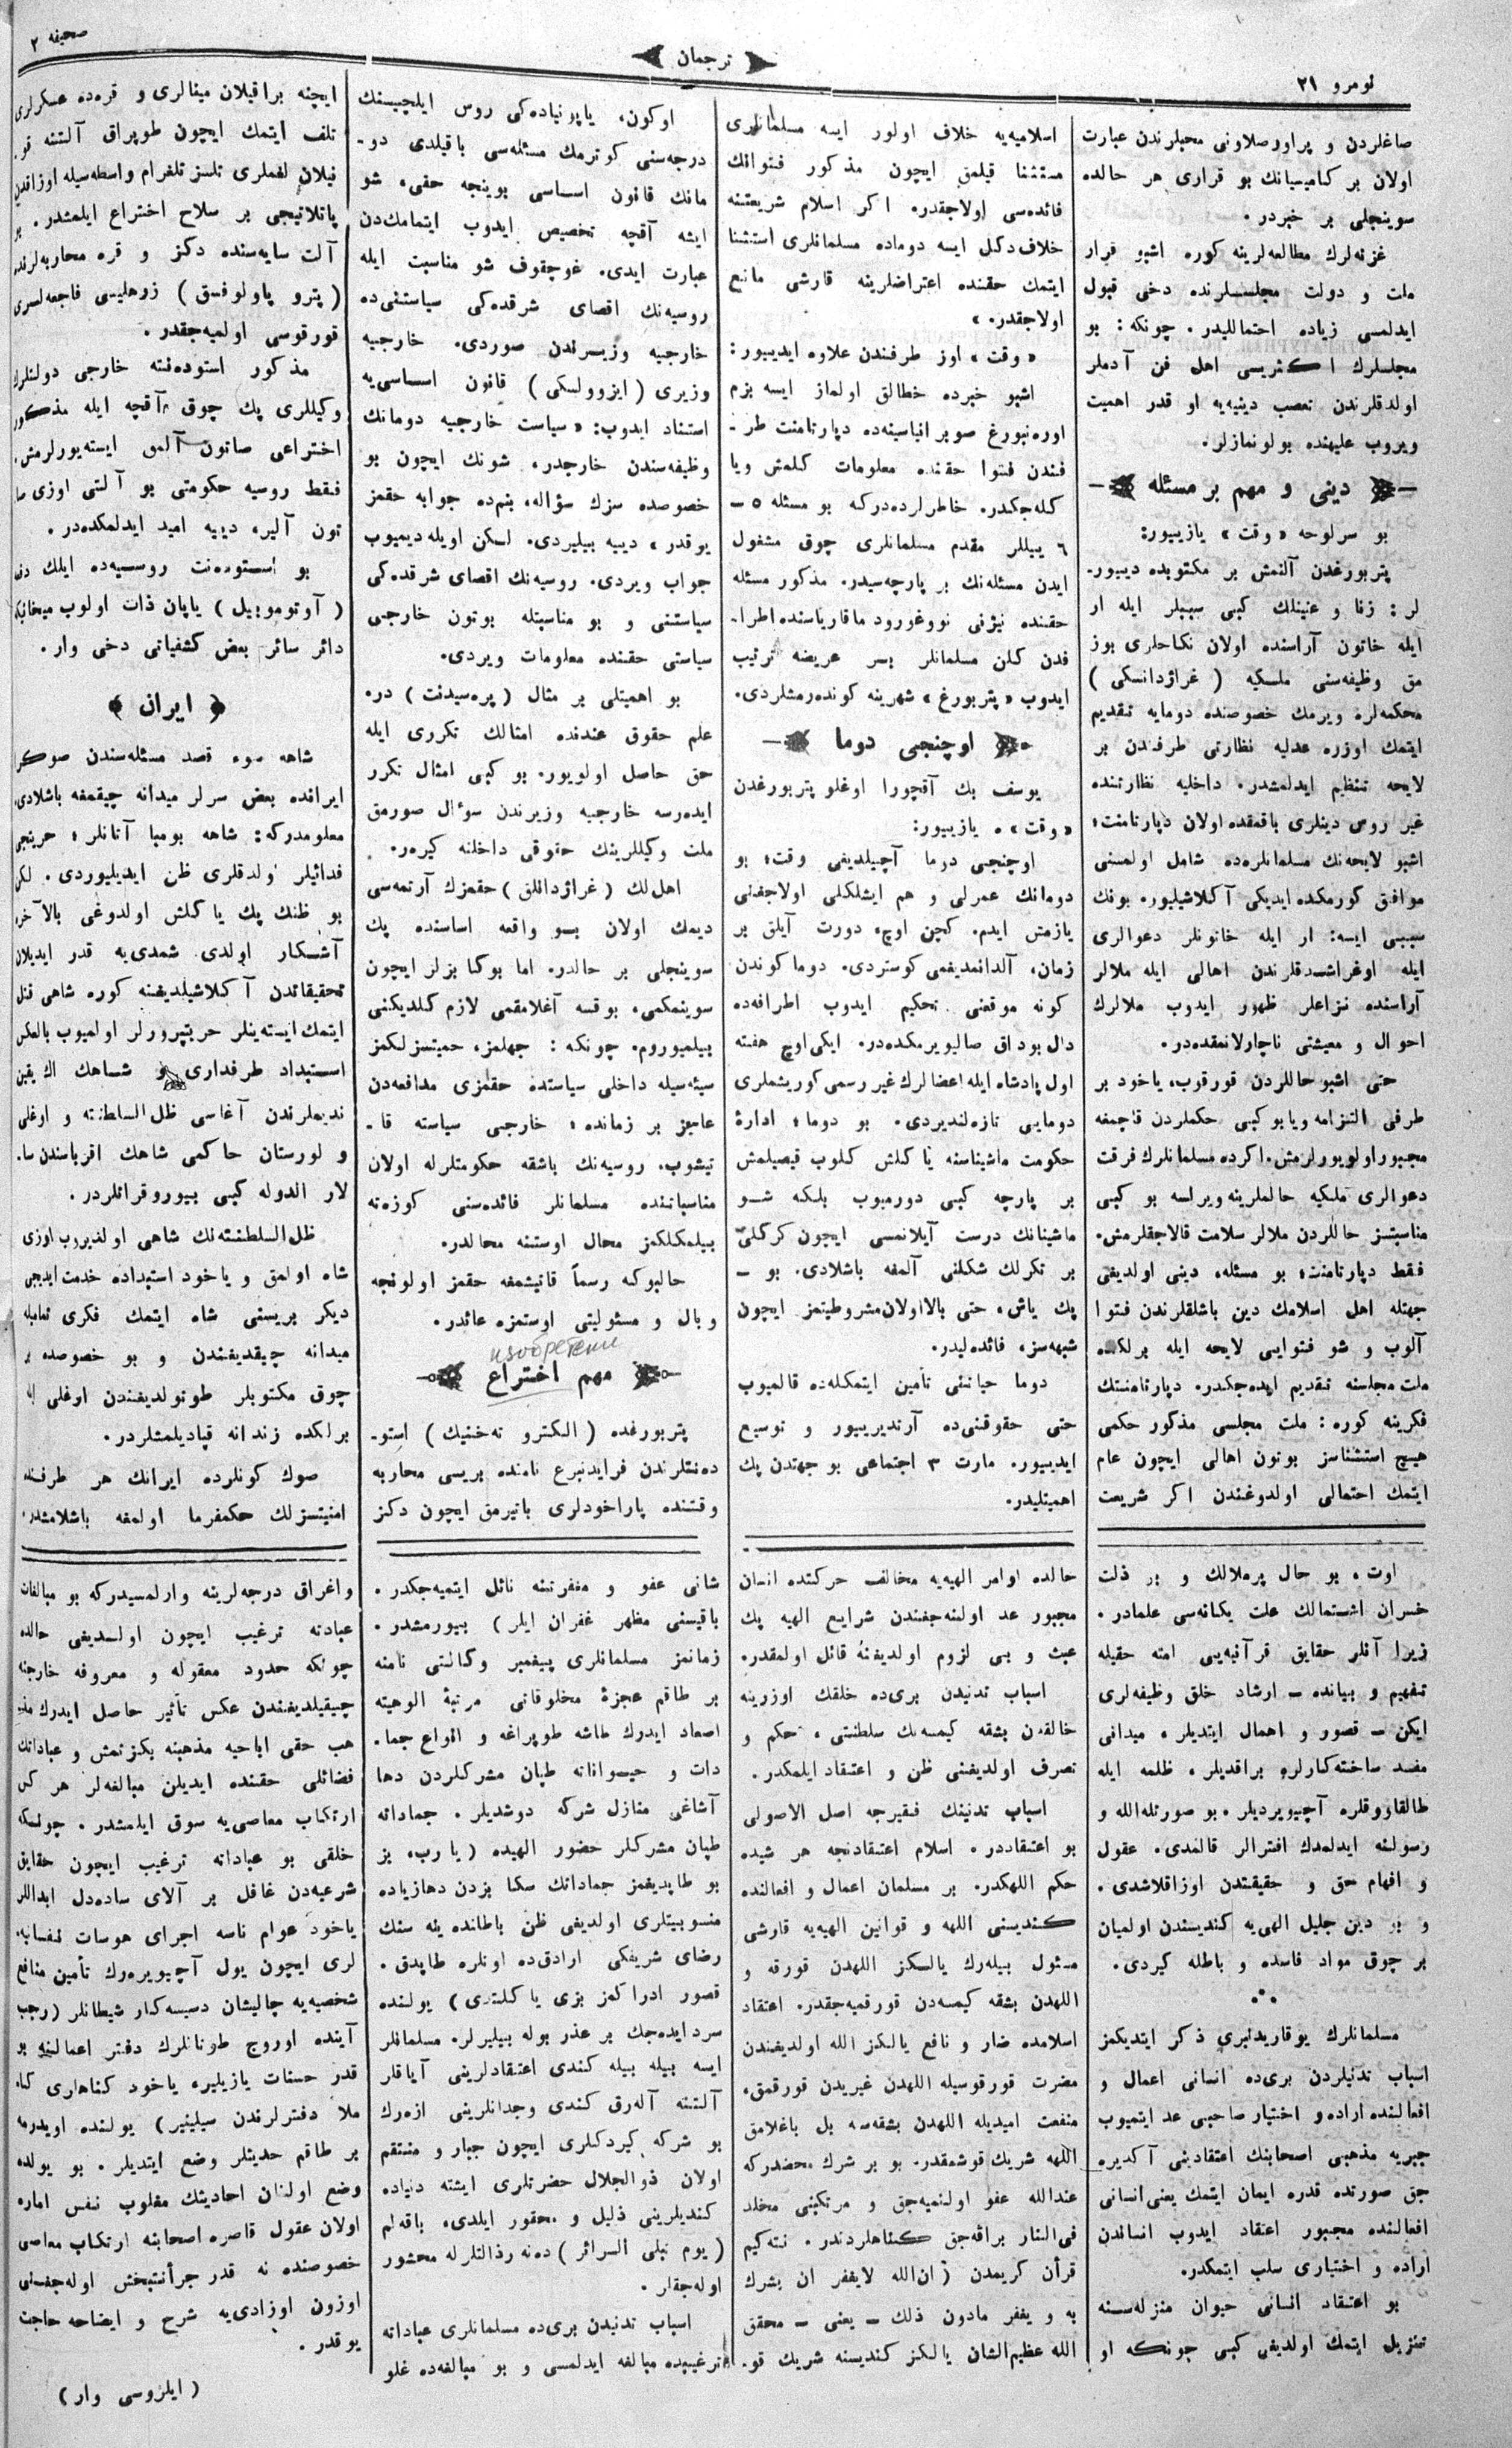 نومرو ٢١
ترجمان
صحیفه ٢
صاغلردن و پراووصلاونی محبلرندن عبارت
اولان بر کامیسیانك بو قراری هر حالده
سوینجلی بر خبردر.
غزته‌لرك مطالعه‌لرینه کوره اشبو قرار
ملت و دولت مجلسلرنده دخی قبول
ایدلمسی زیاده احتماللیدر. چونکه: بو
مجلسلرك اکثریسی اهل فن آدملر
اولدقلرندن تعصب دینیه‌یه او قدر اهمیت
ویروب علیهنده بولونمازلر.
دینی و مهم بر مسئله
بو سرلوحه «وقت» یازییور:
پتربورغدن آلنمش بر مکتوبده دیییور-
لر: زنا و عنینلك کبی سببلر ایله ار
ایله خاتون آراسنده اولان نکاحلری بوز
مق وظیفه‌سنی ملکیه (غراژدانسکی)
محکمه‌لره ویرمك خصوصنده دومایه تقدیم
ایتمك اوزره عدلیه نظارتی طرفندن بر
لایحه تنظیم ایدلمشدر. داخلیه نظارتنده
غیر روس دینلری باقمقده اولان دپارتامنت؛
اشبو لایحه‌نك مسلمانلره‌ده شامل اولمسنی
موافق کورمکده ایدیکی آکلاشیلیور. بونك
سببی ایسه: ار ایله خاتونلر دعوالری
ایله اوغراشدقلرندن اهالی ایله ملالر
آراسنده نزاعلر ظهور ایدوب ملالرك
احوال و معیشتی ناچارلانمقده‌در.
حتی اشبو حاللردن قورقوب، یاخود بر
طرفی التزامه ویا بو کبی حکملردن قاچمغه
مجبور اولویورلرمش. اکرده مسلمانلرك فرقت
دعوالری ملکیه حاکملرینه ویرلسه بو کبی
مناسبتسز حاللردن ملالر سلامت قالاجقلرمش.
فقط دپارتامنت؛ بو مسئله، دینی اولدیغی
جهتله اهل اسلامك دین باشلقلرندن فتوا
آلوب و شو فتوایی لایحه ایله برلکده
ملت مجلسنه تقدیم ایده‌جکدر. دپارتامنتك
فکرینه کوره: ملت مجلسی مذکور حکمی
هیچ استثناسز بوتون اهالی ایچون عام
ایتمك احتمالی اولدوغندن اکر شریعت
اسلامیه‌یه خلاف اولور ایسه مسلمانلری
مستثنا قیلمق ایچون مذکور فتوانك
فائده‌سی اولاجقدر. اکر اسلام شریعتنه
خلاف دکل ایسه دوماده مسلمانلری استثنا
ایتمك حقنده اعتراضلرینه قارشی مانع
اولاجقدر.»
«وقت» اوز طرفندن علاوه ایدییور:
اشبو خبرده خطالق اولماز ایسه بزم
اوره‌نبورغ صوبرانیاسینه‌ده دپارتامنت طر-
فندن فتوا حقنده معلومات کلمش ویا
کله‌جکدر. خاطرلرده‌درکه بو مسئله ٥ –
٦ ییللر مقدم مسلمانلری چوق مشغول
ایدن مسئله‌نك بر پارچه‌سیدر. مذکور مسئله
حقنده نیژنی نووغورود ماقاریاسنده اطرا-
فدن کلن مسلمانلر بر عریضه ترتیب
ایدوب «پتربورغ» شهرینه کوندەرمشلردی.
اوچنجی دوما
یوسف بك آقچورا اوغلو پتربورغدن
«وقت»ه یازییور:
اوچنجی دوما آچیلدیغی وقت؛ بو
دومانك عمرلی و هم ایشلکلی اولاجغنی
یازمش ایدم. کچن اوچ، دورت آیلق بر
زمان، آلدانمدیغمی کوستردی. دوما کوندن
کونه موقعنی تحکیم ایدوب اطرافه‌ده
دال بوداق صالیویرمکده‌در. ایکی اوچ هفته
اول پادشاه ایله اعضالرك غیر رسمی کوریشملری
دومایی تازه‌لندیردی. بو دوما؛ ادارۀ
حکومت ماشیناسنه یاکلش کلوب قیصیلمش
بر پارچه کبی دورمیوب بلکه شو
ماشینانك درست آیلانمسی ایچون کرکلی
بر تکرلك شکلنی آلمغه باشلادی. بو –
پك یاش، حتی بالا اولان مشروطیتمز ایچون
شبهه‌سز، فائده‌لیدر.
دوما حیاتنی تأمین ایتمکله‌ده قالمیوب
حتی حقوقنی‌ده آرتدیرییور و توسیع
ایدییور. مارت ٣ اجتماعی بو جهتدن پك
اهمیتلیدر.
اوکون، یاپونیاده‌کی روس ایلچیسنك
درجه‌سنی کوترمك مسئله‌سی باقیلدی دو-
مانك قانون اساسی بوینجه حقی، شو
ایشه آقچه تخصیص ایدوب ایتمامك‌دن
عبارت ایدی. غوچقوف شو مناسبت ایله
روسیه‌نك اقصای شرقده‌کی سیاستنی‌ده
خارجیه وزیرندن صوردی. خارجیه
وزیری (ایزوولسکی) قانون اساسی‌یه
استناد ایدوب: «سیاست خارجیه دومانك
وظیفه‌سندن خارجدر، شونك ایچون بو
خصوصده سزك سؤاله، بنم‌ده جوابه حقمز
یوقدر» دییه بیلیردی. لکن اویله دیمیوب
جواب ویردی. روسیه‌نك اقصای شرقده‌کی
سیاستنی و بو مناسبتله بوتون خارجی
سیاستی حقنده معلومات ویردی.
بو اهمیتلی بر مثال (پره‌سیدنت) در.
علم حقوق عندنده امثالك تکرری ایله
حق حاصل اولویور. بو کبی امثال تکرر
ایده‌رسه خارجیه وزیرندن سوٴال صورمق
ملت وکیللرینك حقوقی داخلنه کیره‌ر.
اهل‌لك (غراژدانلق) حقمزك آرتمه‌سی
دیمك اولان بو واقعه اساسنده پك
سوینجلی بر حالدر. اما بوکا بزلر ایچون
سوینمکمی، یوقسه آغلامقمی لازم کلدیکنی
بیلمیوروم. چونکه: جهلمز، حمیتسزلکمز
سیئه‌سیله داخلی سیاستده حقمزی مدافعه‌دن
عاجز بر زمانده؛ خارجی سیاسته قا-
تیشوب، روسیه‌نك باشقه حکومتلرله اولان
مناسباتنده مسلمانلر فائده‌سنی کوزه‌ته
بیلمکلکمز محال اوستنه محالدر.
حالبوکه رسماً قاتیشمغه حقمز اولونجه
وبال و مسئولیتی اوستمزه عائددر.
изобретение
مهم اختراع
پتربورغده (الکترو ته‌خنیك) استو-
ده‌نتلرندن فرایدنبرغ نامنده بریسی محاربه
وقتنده پاراخودلری باتیرمق ایچون دکز
ایچنه براقیلان مینالری و قره‌ده عسکرلری
تلف ایتمك ایچون طوپراق آلتنه قو-
فیلان لغملری تلسز تلغرام واسطه‌سیله اوزاقدن
پاتلاتیجی بر سلاح اختراع ایلمشدر. بو
آلت سایه‌سنده دکز و قره محاربه‌لرنده
(پترو پاولوفسق) زرهلیسی فاجعه‌لری
قورقوسی اولمیه‌جقدر.
مذکور استوده‌نته خارجی دولتلرك
وکیللری پك چوق آقچه ایله مذکور
اختراعی صاتون آلمق ایسته‌یورلرمش.
فقط روسیه حکومتی بو آلتی اوزی صا
تون آلیر، دییه امید ایدلمکده‌در.
بو استوده‌نت روسیه‌ده ایلك دفعه
(آوتوموبیل) یاپان ذات اولوب میخانیکه
دائر سائر بعض کشفیاتی دخی وار.
ایران
شاهه سوء قصد مسئله‌سندن صوکره
ایرانده بعض سرلر میدانه چیقمغه باشلادی.
معلومدرکه: شاهه بومبا آتانلر؛ حریتجی
فدائیلر اولدقلری ظن ایدیلیوردی. لکن
بو ظنك پك یاکلش اولدوغی بالآخره
آشکار اولدی. شمدی‌یه قدر ایدیلان
تحقیقاتدن آکلاشیلدیغنه کوره شاهی قتل
ایتمك ایسته‌ینلر حریتپرورلر اولمیوب بالعکس
استبداد طرفداری و شاهك اك یقین
ندیملرندن آغاسی ظل السلطنه و اوغلی
و لورستان حاکمی شاهك اقرباسندن سا-
لار الدوله کبی بیوروقراتلردر.
ظل السلطنته‌نك شاهی اولدیروب اوزی
شاه اولمق و یاخود استبداده خدمت ایدیجی
دیکر بریسنی شاه ایتمك فکری تمامیله
میدانه چیقدیغندن و بو خصوصده بر
چوق مکتوبلر طوتولدیغندن اوغلی ایله
برلکده زندانه قپادیلمشلردر.
صوك کونلرده ایرانك هر طرفنده
امنیتسزلك حکمفرما اولمغه باشلامشدر.
اوت، بو حال پرملالك و بر ذلت
خسران اشتمالك علت یکانه‌سی علمادر.
زیرا آنلر حقایق قرآنیه‌یی امته حقیله
تفهیم و بیانده – ارشاد خلق وظیفه‌لری
ایکن – قصور و اهمال ایتدیلر، میدانی
مفسد ساخته‌کارلره براقدیلر، ظلمه ایله
طالقاووقلره آچیویردیلر. بو صورتله الله و
رسولنه ایدلمدك افترالر قالمدی. عقول
و افهام حق و حقیقتدن اوزاقلاشدی.
و بر دین جلیل الهی‌یه کندیسندن اولمیان
بر چوق مواد فاسده و باطله کیردی.
مسلمانلرك یوقاریدنبری ذکر ایتدیکمز
اسباب تدنیلردن بری‌ده انسانی اعمال و
افعالنده اراده و اختیار صاحبی عد ایتمیوب
جبریه مذهبی اصحابنك اعتقادینی آکدیره
جق صورتده قدره ایمان ایتمك یعنی انسانی
افعالنده مجبور اعتقاد ایدوب انساندن
اراده و اختیاری سلب ایتمکدر.
بو اعتقاد انسانی حیوان منزله‌سنه
تنزیل ایتمك اولدیغی کبی چونکه او
حالده اوامر الهیه‌یه مخالف حرکتده انسان
مجبور عد اولنه‌جغندن شرایع الهیه پك
عبث و بی لزوم اولدیغنه قائل اولمقدر.
اسباب تدنیدن بری‌ده خلقك اوزرینه
خالقدن بشقه کیمسه‌نك سلطنتی، حکم و
تصرف اولدیغنی ظن و اعتقاد ایلمکدر.
اسباب تدنینك فقیرجه اصل الاصولی
بو اعتقاددر. اسلام اعتقادنجه هر شیده
حکم اللهکدر. بر مسلمان اعمال و افعالنده
کندیسنی الله و قوانین الهیه‌یه قارشی
مسئول بیله‌رك یالکز اللهدن قورقه و
اللهدن بشقه کیمسه‌دن قورقمیه‌جقدر. اعتقاد
اسلامده ضار و نافع یالکز الله اولدیغندن
مضرت قورقوسیله اللهدن غیریدن قورقمق،
منفعت امیدیله اللهدن بشقه‌سه بل باغلامق
اللهه شریك قوشمقدر. بو بر شرك محضدرکه
عندالله عفو اولنمیه‌جق و مرتکبنی مخلد
فی النار براقه‌جق کناهلردندر. نته‌کیم
قرآن کریمدن (ان الله لایغفر ان یشرك
به و یغفر مادون ذلك – یعنی – محقق
الله عظیم الشان یالکز کندیسنه شریك قو-
شانی عفو و مغفرتنه نائل ایتمیه‌جکدر.
باقیسنی مظهر غفران ایلر) بیورمشدر.
زمانمز مسلمانلری پیغمبر وکالتی نامنه
بر طاقم عجزۀ مخلوقاتی مرتبۀ الوهیته
اصعاد ایدرك طاشه طوپراغه و انواع جما-
دات و حیواناته طپان مشرکلردن دها
آشاغی منازل شرکه دوشدیلر. جماداته
طپان مشرکلر حضور الهیده (یا رب، بز
بو طاپدیغمز جماداتك سکا بزدن دها زیاده
منسوبیتلری اولدیغی ظن باطانده ینه سنك
رضای شریفکی آرادق‌ده اونلره طاپدق.
قصور ادراکمز بزی یاکلتدی) یولنده
سرد ایده‌جك بر عذر بوله بیلیرلر. مسلمانلر
ایسه بیله بیله کندی اعتقادلرینی آیاقلر
آلتنه آله‌رق کندی وجدانلرینی ازه‌رك
بو شرکه کیردکلری ایچون جبار و منتقم
اولان ذوالجلال حضرتلری ایشته دنیاده
کندیلرینی ذلیل و محقور ایلدی، باقه‌لم
(یوم تبلی السرائر) ده‌نه رذالتلرله محشور
اوله‌جقلر.
اسباب تدنیدن بری‌ده مسلمانلری عباداته
ترغیبده مبالغه ایدلمسی و بو مبالغه‌ده غلو
واغراق درجه‌لرینه وارلمسیدرکه بو مبالغات
عباداته ترغیب ایچون اولدیغی حالده
چونکه حدود معقوله و معروفه خارجنه
چیقیلدیغندن عکس تأثیر حاصل ایدرك مذ-
هب حقی اباحیه مذهبنه بکزتمش و عباداتك
فضائلی حقنده ایدیلن مبالغه‌لر هر کس
ارتکاب معاصی‌یه سوق ایلمشدر. چونکه
خلقی بو عباداته ترغیب ایچون حقایق
شرعیه‌دن غافل بر آلای ساده‌دل ابدالر
یاخود عوام ناسه اجرای هوسات نفسانیه-
لری ایچون یول آچیویره‌رك تأمین منافع
شخصیه‌یه چالیشان دسیسه‌کار شیطانلر (رجب
آینده اوروج طوتانلرك دفتر اعمالنه بو
قدر حسنات یازیلیر، یاخود کناهلری کناه
ملا دفترلرندن سیلینیر) یولنده اویدرمه
بر طاقم حدیثلر وضع ایتدیلر. بو یولده
وضع اولنان احادیثك مغلوب نفس اماره
اولان عقول قاصره اصحابنه ارتکاب معاصی
خصوصنده نه قدر جرأتبخش اوله‌جغنی
اوزون اوزادی‌یه شرح و ایضاحه حاجت
یوقدر.
(ایلروسی وار)